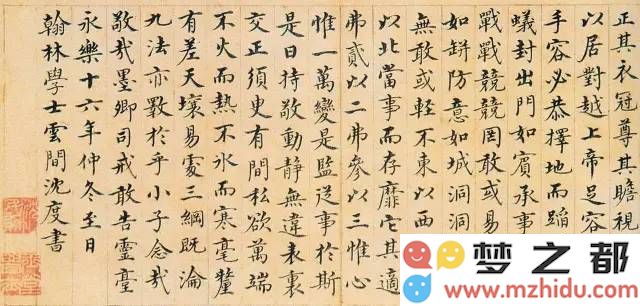 正其衣冠尊其瞻視
以居對越上帝足容
手容必恭擇地而蹈
蟻封出門如賓承事
戰戰兢兢罔敢或易
如缾防意如城洞洞
無敢或輕不東以西
以北當事而存靡它其適
弗貳以二弗參以三惟心
惟一萬變是監從事於斯
是曰持敬動靜無違表裏
交正須臾有間私欲萬端
不火而熱不氷而寒毫釐
有差天壤易處三綱既淪
九法亦斁於乎小子念哉
敬哉墨卿司戒敢告靈臺
永樂十六年仲冬至日
翰林學士雲間沈度書
梦之都
www.mzhidu.com